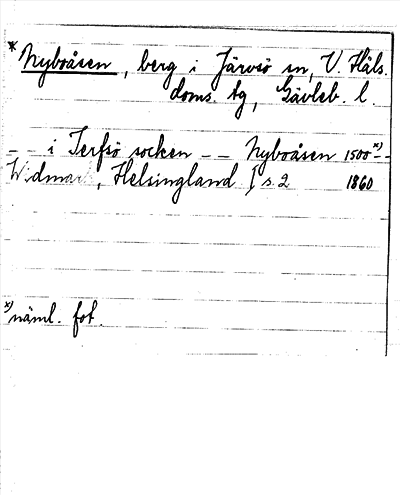 * Nyboåsen, berg i Järvsö sn, V. Häls.
doms. tg, Gävleb. l.
_ _ i Jerfsö socken _ _ Nyboåsen 1500 x) _ _
Widmark, Helsingland I s. 2 1860
x) näml. fot.